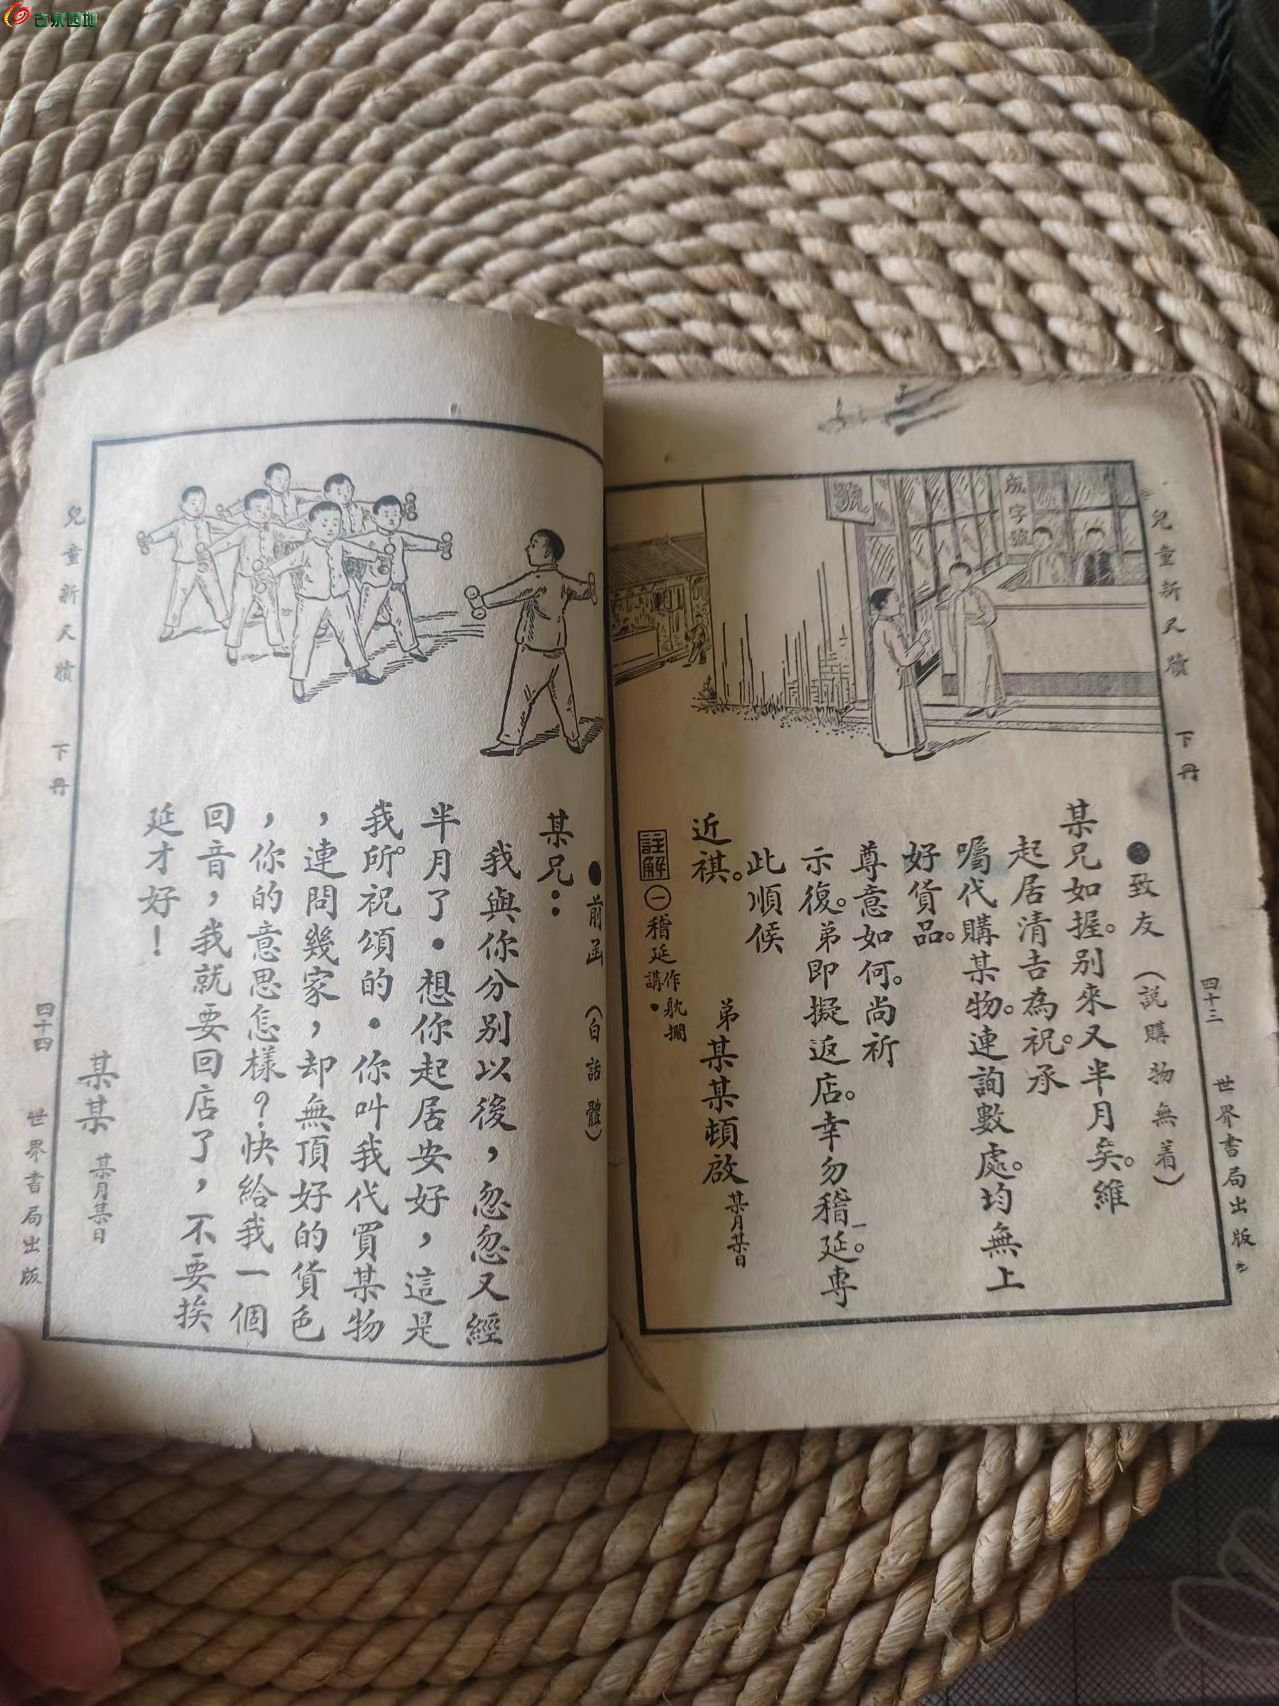 古泉园地
兒童新尺牘 下册 四十三 世界書局出版
號
成字號
●致友(說購物無着)
某兄如握。別來又半月矣。維
起居清吉為祝。承
囑代購某物。連詢數處。均無上
好貨品。
尊意如何。尚祈
示復。弟即擬返店。幸勿稽延。專
一
此順候
近祺。
弟某某頓啟 某月某日
註解 ㊀稽延作躭擱講。
●前函(白話體)
某兄:
我與你分別以後,忽忽又經
半月了.想你起居安好,這是
我所祝頌的.你叫我代買某物
,連問幾家,却無頂好的貨色
,你的意思怎樣?快給我一個
回音,我就要回店了,不要挨
延才好!
某某 某月某日
兒童新尺牘 下册 四十四 世界書局出版